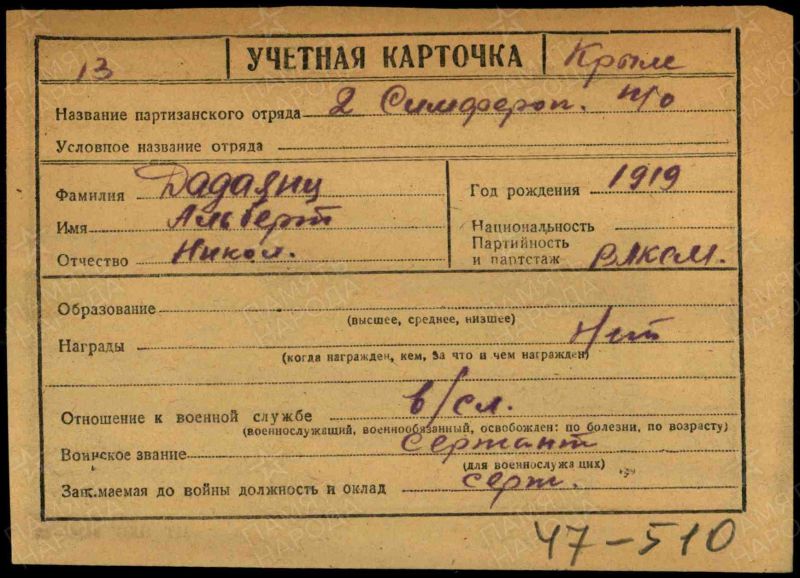 13 УЧЕТНАЯ КАРТОЧКА Крым
Название партизанского отряда 2 Симфероп. п/о
Условное название отряда
Фамилия Дадаянц
Год рождения 1919
Имя Альберт
Национальность
Отчество Никол.
Партийность
и партстаж ВЛКСМ.
Образование
(высшее, среднее, низшее)
Награды Нет
(когда награжден, кем, за что и чем награжден)
Отношение к военной службе в/сл.
(военнослужащий, военнообязанный, освобожден: по болезни, по возрасту)
Воинское звание сержант
(для военнослужащих)
Занимаемая до войны должность и оклад серж.
47-510
ПАМЯТЬ
НАРОДА